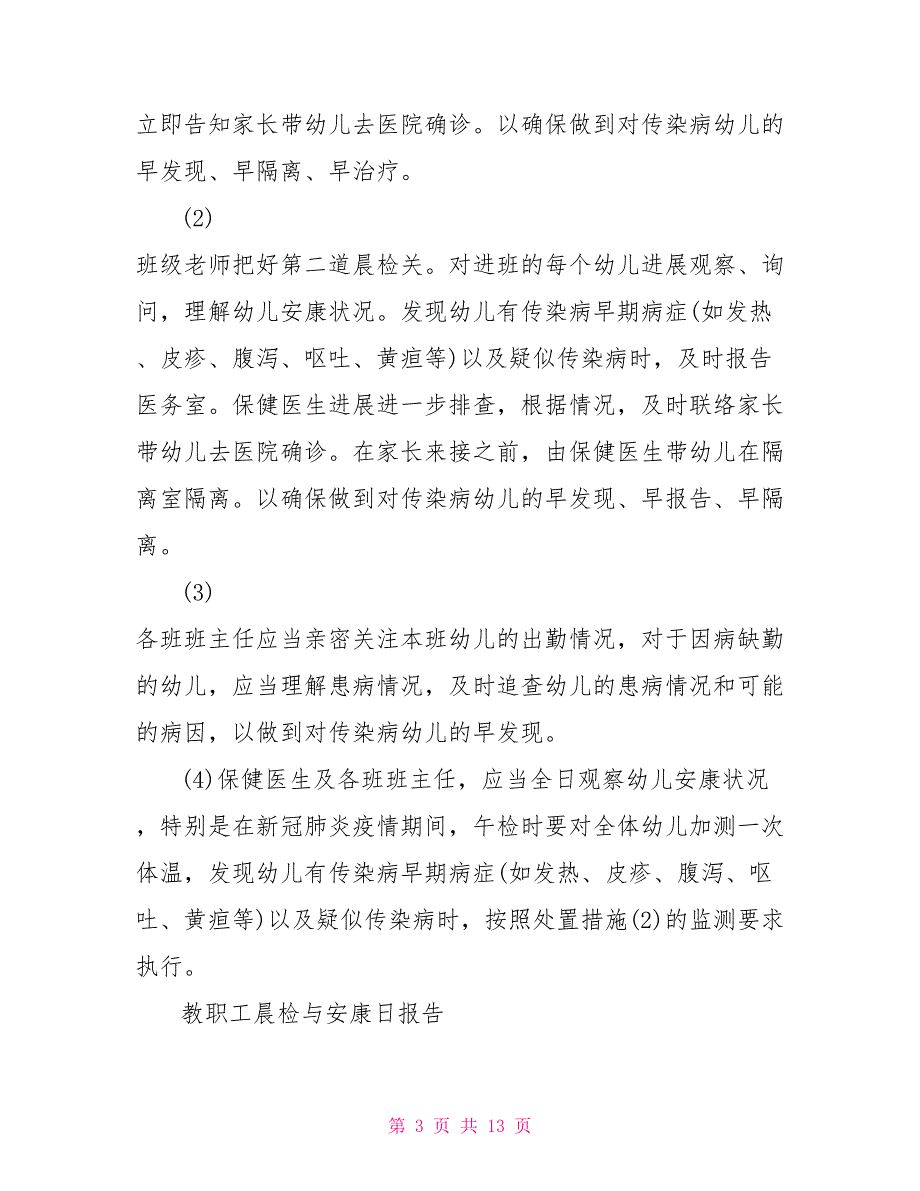 立即告知家长带幼儿去医院确诊。以确保做到对传染病幼儿的
早发现、早隔离、早治疗。
(2)
班级老师把好第二道晨检关。对进班的每个幼儿进展观察、询
问，理解幼儿安康状况。发现幼儿有传染病早期病症(如发热
、皮疹、腹泻、呕吐、黄疸等)以及疑似传染病时，及时报告
医务室。保健医生进展进一步排查，根据情况，及时联络家长
带幼儿去医院确诊。在家长来接之前，由保健医生带幼儿在隔
离室隔离。以确保做到对传染病幼儿的早发现、早报告、早隔
离。
(3)
各班班主任应当亲密关注本班幼儿的出勤情况，对于因病缺勤
的幼儿，应当理解患病情况，及时追查幼儿的患病情况和可能
的病因，以做到对传染病幼儿的早发现。
(4)保健医生及各班班主任，应当全日观察幼儿安康状况
，特别是在新冠肺炎疫情期间，午检时要对全体幼儿加测一次
体温，发现幼儿有传染病早期病症(如发热、皮疹、腹泻、呕
吐、黄疸等)以及疑似传染病时，按照处置措施(2)的监测要求
执行。
教职工晨检与安康日报告
第 3 页 共 13 页